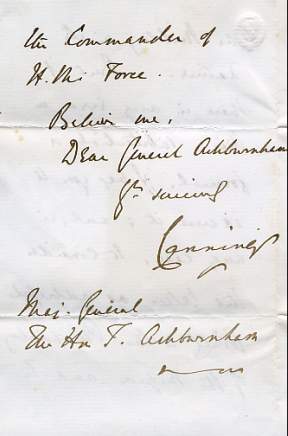 the Commander of
H. M. Force.
Believe me,
Dear General Ashburnham
Yrs sincerely
Canning
Maj. General
The Hn T. Ashburnham